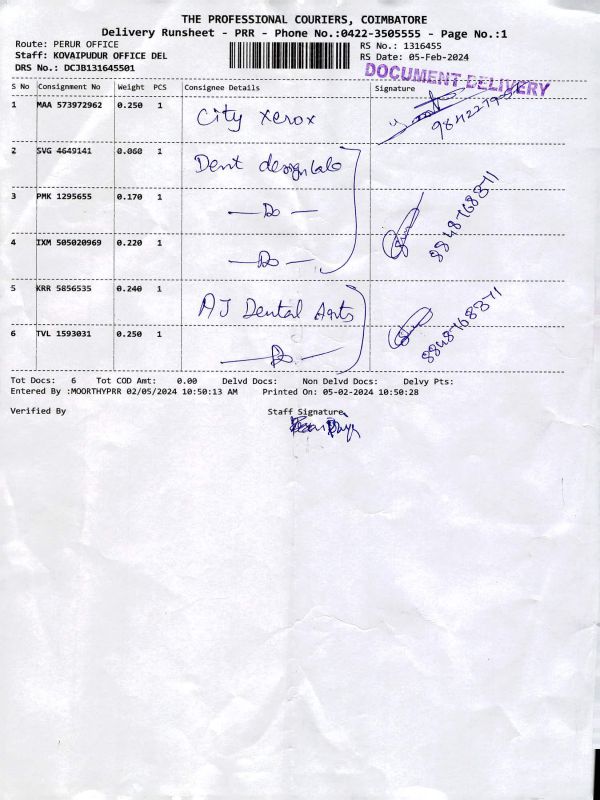 THE PROFESSIONAL COURIERS, COIMBATORE
Delivery Runsheet - PRR - Phone No.:0422-3505555 - Page No.:1
Route: PERUR OFFICE
Staff: KOVAIPUDUR OFFICE DEL
DRS No.: DCJB131645501
RS No.: 1316455
RS Date: 05-Feb-2024
DOCUMENT DELIVERY
S No Consignment No Weight PCS Consignee Details Signature
1 MAA 573972962 0.250 1 City Xerox
2 SVG 4649141 0.060 1 Dent design lab
3 PMK 1295655 0.170 1 — Do —
4 IXM 505020969 0.220 1 — Do —
8848768871
5 KRR 5856535 0.240 1 AJ Dental Arts
6 TVL 1593031 0.250 1 — Do —
8848768871
Tot Docs: 6 Tot COD Amt: 0.00 Delvd Docs: Non Delvd Docs: Delvy Pts:
Entered By :MOORTHYPRR 02/05/2024 10:50:13 AM Printed On: 05-02-2024 10:50:28
Verified By Staff Signature